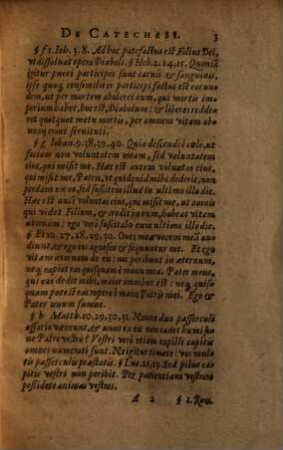 DE CATECHESI. 3
§ f 1. Ioh. 3.8. Ad hoc patefactus est Filius Dei,
vt dissoluat opera Diaboli. § Heb. 2.14,15. Quoniā
igitur pueri participes sunt carnis & sanguinis,
ipse quoq; consimiliter particeps factus est eorun-
dem, vt per mortem aboleret eum, qui mortis im-
perium habet, hoc est, Diabolum: & liberos redde-
ret quotquot metu mortis, per omnem vitam ob-
noxij erant seruituti.
§ g Iohan. 6.38,39,40. Quia descendi è cœlo, vt
faciam non voluntatem meam, sed voluntatem
eius, qui misit me. Hæc est autem voluntas eius,
qui misit me, Patris, vt quidquid mihi dederit, non
perdam ex eo, sed suscitem illud in vltimo illo die.
Hæc est auté voluntas eius, qui misit me, vt omnis
qui videt Filium, & credit in eum, habeat vitam
æternam: ego verò suscitabo eum vltimo illo die.
§ Et 10. 27.28, 29, 30. Oues meæ vocem meā au-
diunt, & ego eas agnosco & sequuntur me. Et ego
vitam æternam do eis: nec peribunt in æternum,
neq; rapiet eas quisquam è manu mea. Pater meus,
qui eas dedit mihi, maior omnibus est: neq; quis-
quam potest eas rapere è manu Patris mei. Ego &
Pater vnum sumus.
§ h Matth. 10.29,30,31. Nonne duo passerculi
assario vaneunt, & vnus ex eis non cadet humi si-
ne Patre vestro? Vestri verò etiam capilli capitis
omnes numerati sunt. Ne igitur timete: vos mul-
tis passerculis præstatis. § Luc. 21,19. Sed pilus ca-
pitis vestri non peribit. Per patientiam vestram
possidete animas vestras.
A 2 § 1. Rom.